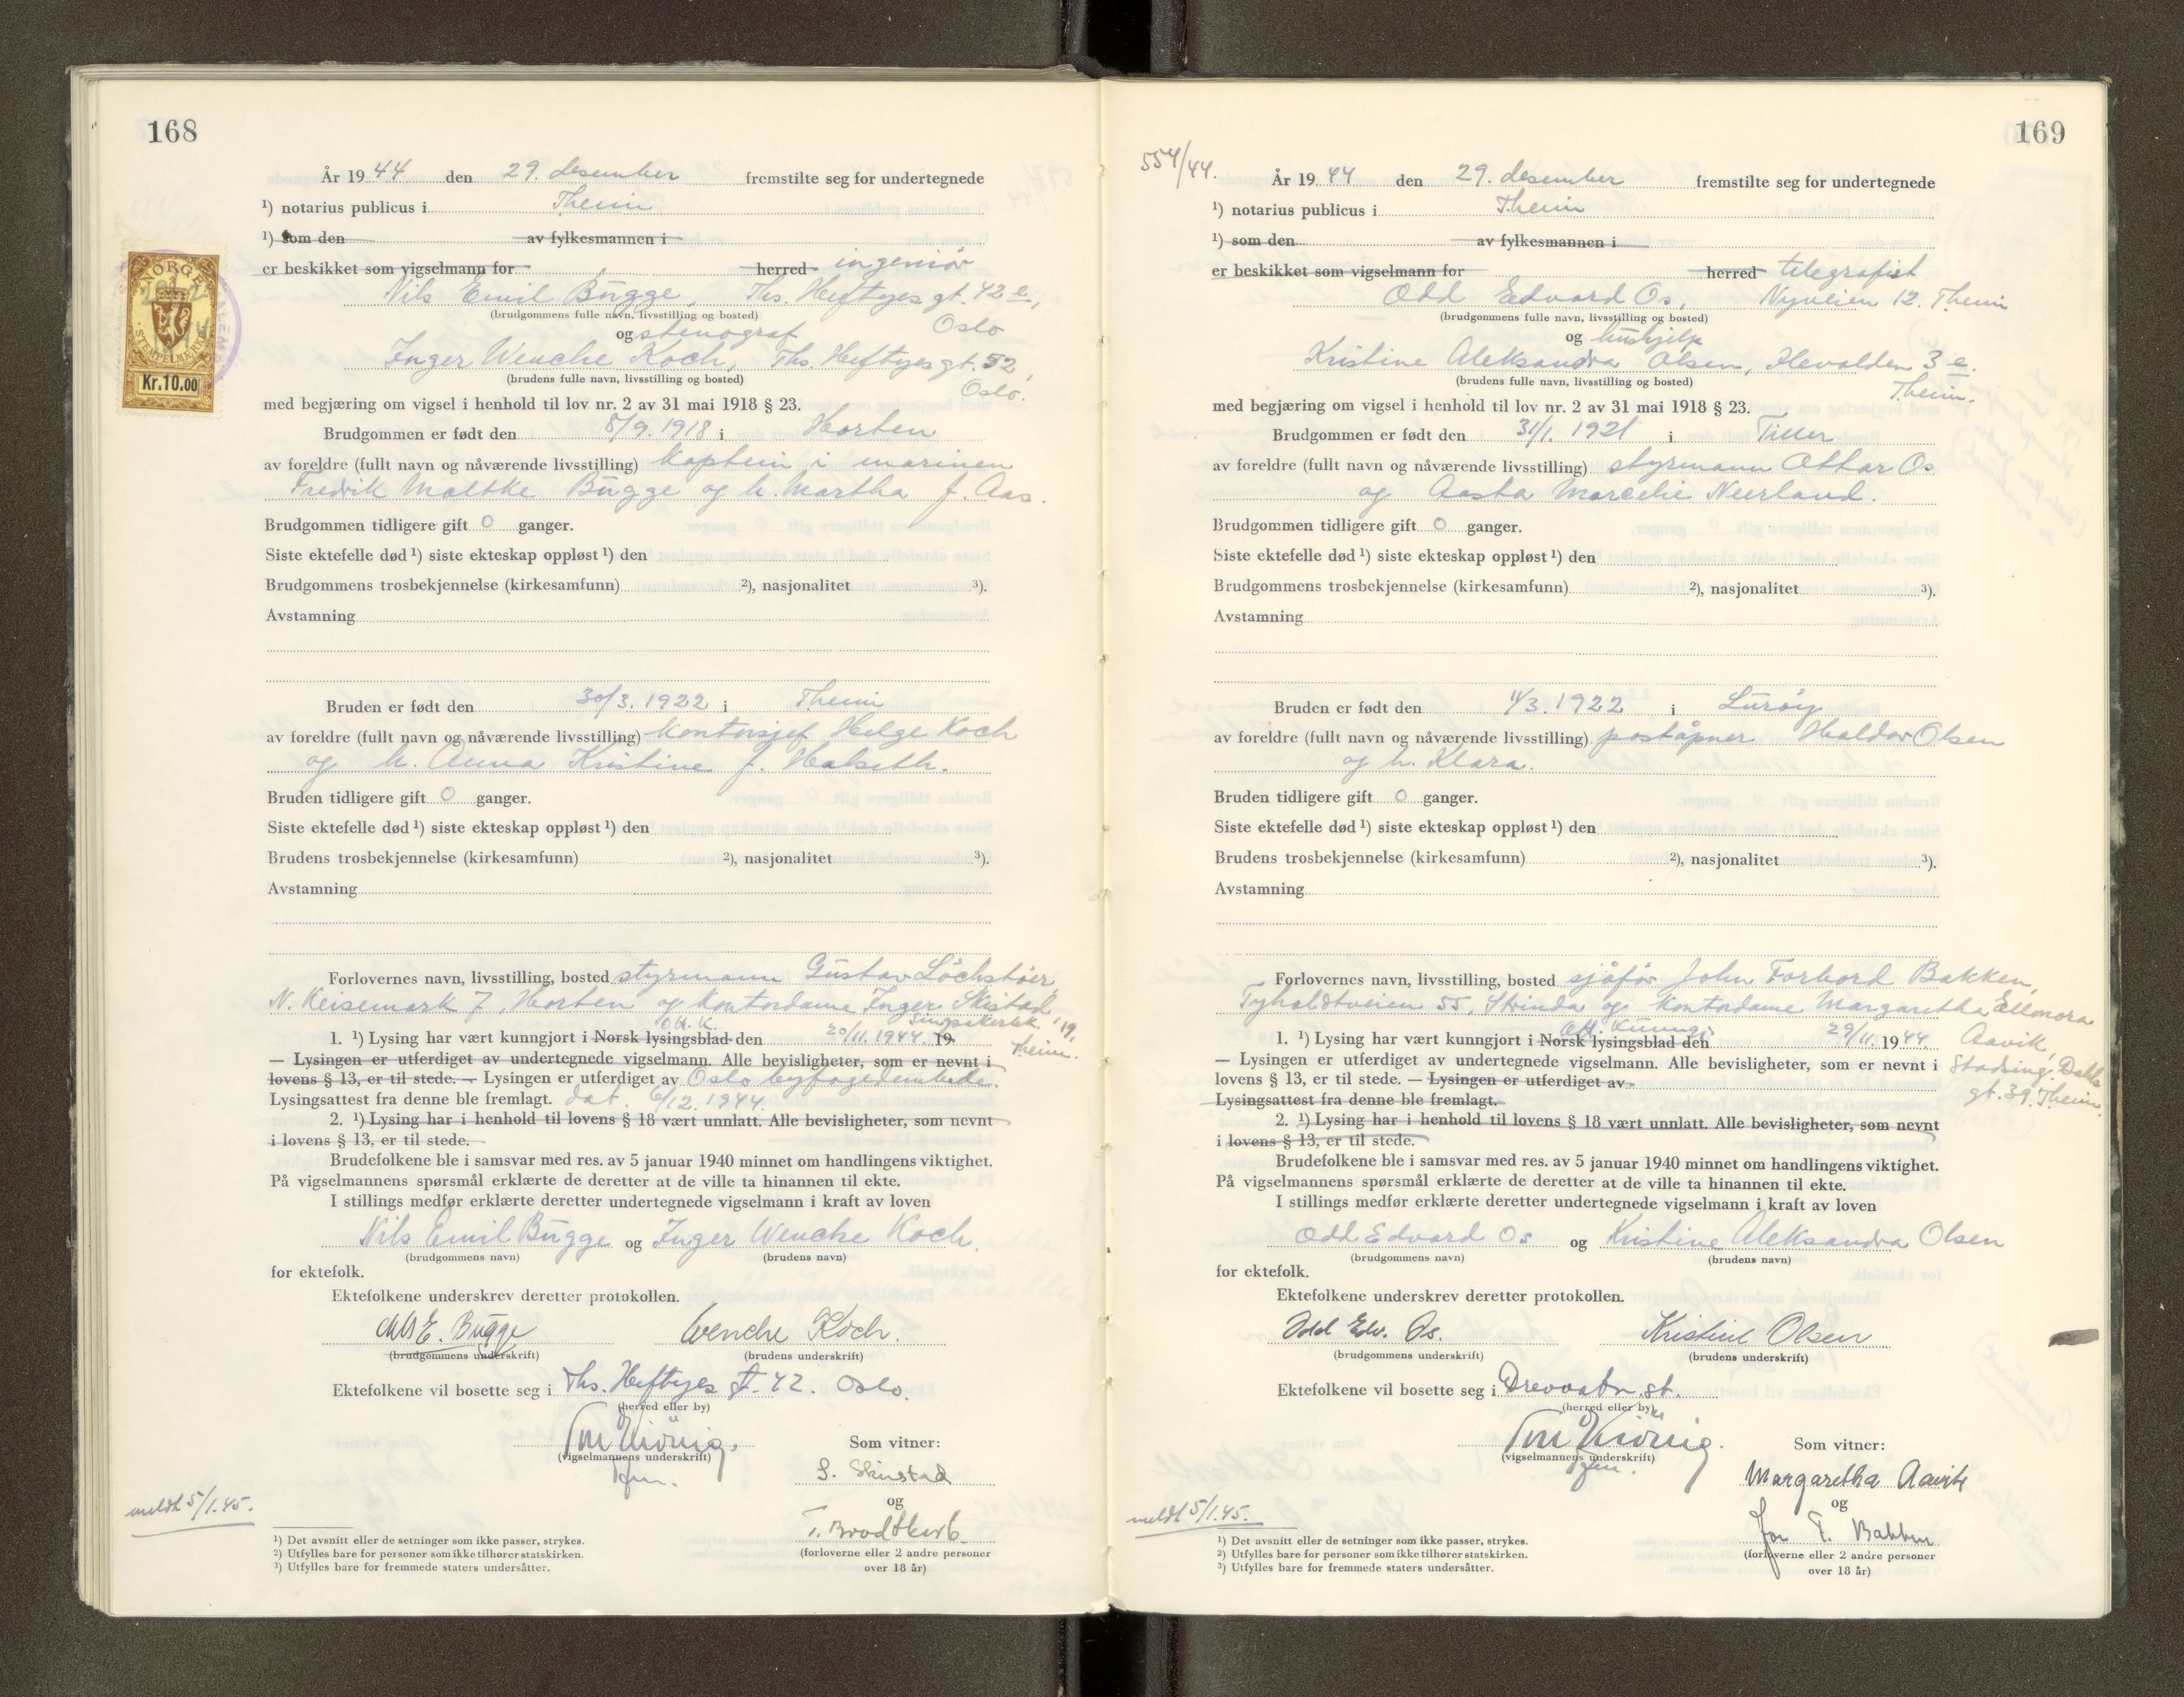 168
År 1944 den 29. desember fremstilte seg for undertegnede
¹) notarius publicus i Theim
¹) som den av fylkesmannen i
er beskikket som vigselmann for herred ingeniør
Nils Emil Bugge, Ths. Heftyes gt. 42 e,
(brudgommens fulle navn, livsstilling og bosted)
Oslo
og stenograf
Inger Wenche Koch, Ths. Heftyes gt. 52,
(brudens fulle navn, livsstilling og bosted)
Oslo.
NORGE
STEMPELMERKE
Kr.10.00
med begjæring om vigsel i henhold til lov nr. 2 av 31 mai 1918 § 23.
Brudgommen er født den 8/9. 1918 i Horten
av foreldre (fullt navn og nåværende livsstilling) kaptein i marinen
Fredrik Moltke Bugge og h. Martha f. Aas.
Brudgommen tidligere gift 0 ganger.
Siste ektefelle død ¹) siste ekteskap oppløst ¹) den
Brudgommens trosbekjennelse (kirkesamfunn) ²), nasjonalitet ³).
Avstamning
Bruden er født den 30/3. 1922 i Theim
av foreldre (fullt navn og nåværende livsstilling) kontorsjef Helge Koch
og h. Anna Kristine f. Halseth.
Bruden tidligere gift 0 ganger.
Siste ektefelle død ¹) siste ekteskap oppløst ¹) den
Brudens trosbekjennelse (kirkesamfunn) ²), nasjonalitet ³).
Avstamning
Forlovernes navn, livsstilling, bosted styrmann Gustav Löchstöer,
N. Keisemark 7, Horten og kontordame Inger Skistad,
19, Theim.
1. ¹) Lysing har vært kunngjort i Norsk lysingsblad Off. K. den 20/11. 1944. 19.
— Lysingen er utferdiget av undertegnede vigselmann. Alle bevisligheter, som er nevnt i
lovens § 13, er til stede. — Lysingen er utferdiget av Oslo byfogedembede.
Lysingsattest fra denne ble fremlagt. dat. 6/12. 1944.
2. ¹) Lysing har i henhold til lovens § 18 vært unnlatt. Alle bevisligheter, som nevnt
i lovens § 13, er til stede.
Brudefolkene ble i samsvar med res. av 5 januar 1940 minnet om handlingens viktighet.
På vigselmannens spørsmål erklærte de deretter at de ville ta hinannen til ekte.
I stillings medfør erklærte deretter undertegnede vigselmann i kraft av loven
Nils Emil Bugge og Inger Wenche Koch.
(brudgommens navn) (brudens navn)
for ektefolk.
Ektefolkene underskrev deretter protokollen.
Nils E. Bugge Wenche Koch.
(brudgommens underskrift) (brudens underskrift)
Ektefolkene vil bosette seg i Ths. Heftyes gt. 42. Oslo.
(herred eller by)
(vigselmannens underskrift)
Som vitner:
og
T. Brodtkorb
(forloverne eller 2 andre personer
over 18 år)
meldt 5/1.45.
¹) Det avsnitt eller de setninger som ikke passer, strykes.
²) Utfylles bare for personer som ikke tilhører statskirken.
³) Utfylles bare for fremmede staters undersåtter.
169
554/44.
År 1944 den 29. desember fremstilte seg for undertegnede
¹) notarius publicus i Theim
¹) som den av fylkesmannen i
er beskikket som vigselmann for herred telegrafist
Odd Edvard Os, Nyveien 12. Theim
(brudgommens fulle navn, livsstilling og bosted)
og hushjelp
Kristine Aleksandra Olsen, Ilevolden 3 e.
(brudens fulle navn, livsstilling og bosted)
Theim.
med begjæring om vigsel i henhold til lov nr. 2 av 31 mai 1918 § 23.
Brudgommen er født den 31/1. 1921 i Tiller
av foreldre (fullt navn og nåværende livsstilling) styrmann Ottar Os
og Aasta Marcelie Neerland.
Brudgommen tidligere gift 0 ganger.
Siste ektefelle død ¹) siste ekteskap oppløst ¹) den
Brudgommens trosbekjennelse (kirkesamfunn) ²), nasjonalitet ³).
Avstamning
Bruden er født den 11/3. 1922 i Lurøy
av foreldre (fullt navn og nåværende livsstilling) poståpner Haldor Olsen
og h. Klara.
Bruden tidligere gift 0 ganger.
Siste ektefelle død ¹) siste ekteskap oppløst ¹) den
Brudens trosbekjennelse (kirkesamfunn) ²), nasjonalitet ³).
Avstamning
Forlovernes navn, livsstilling, bosted sjåfør John Forbord Bakken,
Tyholdtveien 55, Strinda og kontordame Margaretha Ellenora
Aavik,
Stadsing. Dahls
gt. 39. Theim.
1. ¹) Lysing har vært kunngjort i Norsk lysingsblad Off. Kunng. den 29/11. 1944.
— Lysingen er utferdiget av undertegnede vigselmann. Alle bevisligheter, som er nevnt i
lovens § 13, er til stede. — Lysingen er utferdiget av
Lysingsattest fra denne ble fremlagt.
2. ¹) Lysing har i henhold til lovens § 18 vært unnlatt. Alle bevisligheter, som nevnt
i lovens § 13, er til stede.
Brudefolkene ble i samsvar med res. av 5 januar 1940 minnet om handlingens viktighet.
På vigselmannens spørsmål erklærte de deretter at de ville ta hinannen til ekte.
I stillings medfør erklærte deretter undertegnede vigselmann i kraft av loven
Odd Edvard Os og Kristine Aleksandra Olsen
(brudgommens navn) (brudens navn)
for ektefolk.
Ektefolkene underskrev deretter protokollen.
Odd Edv. Os. Kristine Olsen
(brudgommens underskrift) (brudens underskrift)
Ektefolkene vil bosette seg i Drevvatn st.
(herred eller by)
(vigselmannens underskrift)
Som vitner:
Margaretha Aavik
og
Jon F. Bakken
(forloverne eller 2 andre personer
over 18 år)
meldt 5/1.45.
¹) Det avsnitt eller de setninger som ikke passer, strykes.
²) Utfylles bare for personer som ikke tilhører statskirken.
³) Utfylles bare for fremmede staters undersåtter.